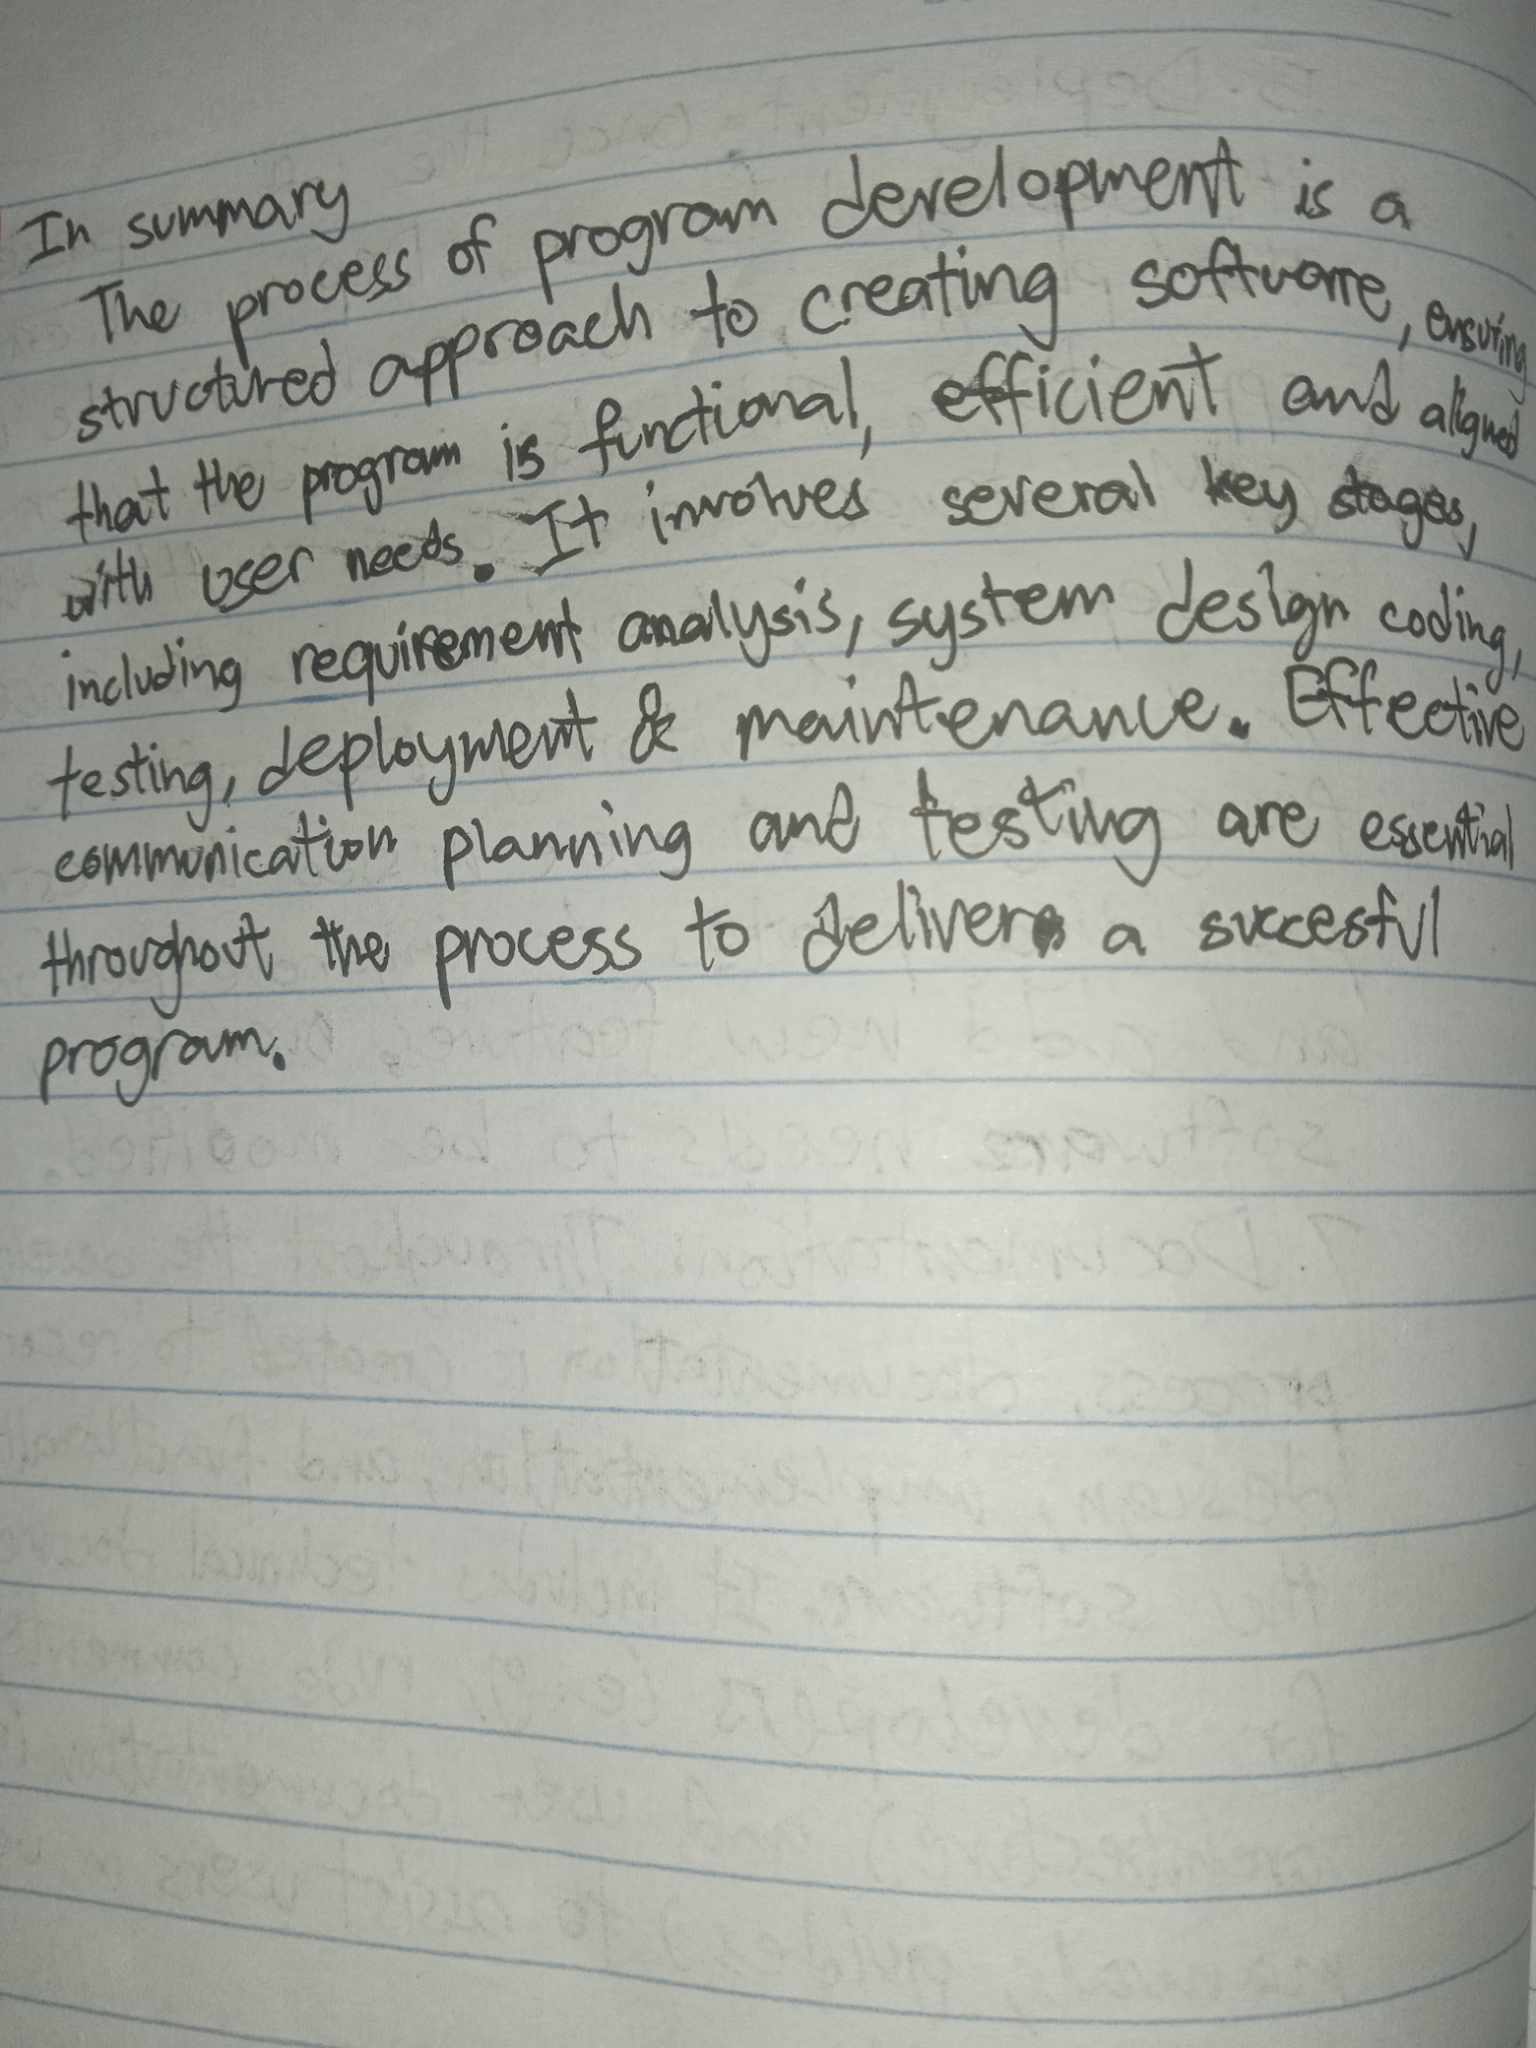 In summary
The process of program development is a
structured approach to creating software, ensuring
that the program is functional, efficient and aligned
with user needs. It involves several key stages,
including requirement analysis, system design coding,
testing, deployment & maintenance. Effective
communication planning and testing are essential
throughout the process to deliver a succesful
program.